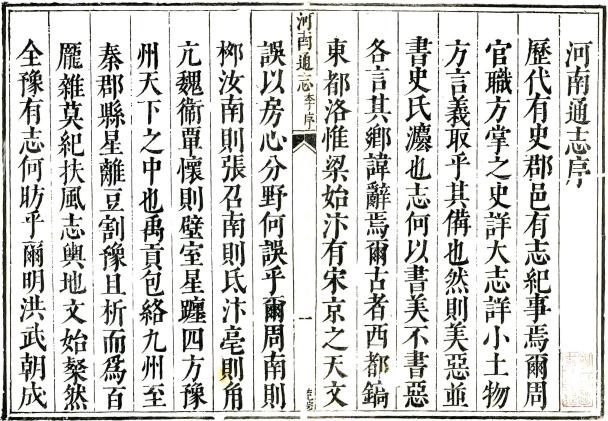 河南通志序
歷代有史郡邑有志紀事焉爾周
官職方掌之史詳大志詳小土物
方言義取乎其備也然則美惡並
書史氏灋也志何以書美不書惡
各言其鄉諱辭焉爾古者西都鎬
東都洛惟梁始汴有宋京之天文
河南通志 李序 一
誤以房心分野何誤乎爾周南則
柳汝南則張召南則氐汴亳則角
亢魏衞覃懷則壁室星躔四方豫
州天下之中也禹貢包絡九州至
秦郡縣星離豆割豫且析而爲百
龎雜莫紀扶風志輿地文始粲然
全豫有志何昉乎爾明洪武朝成